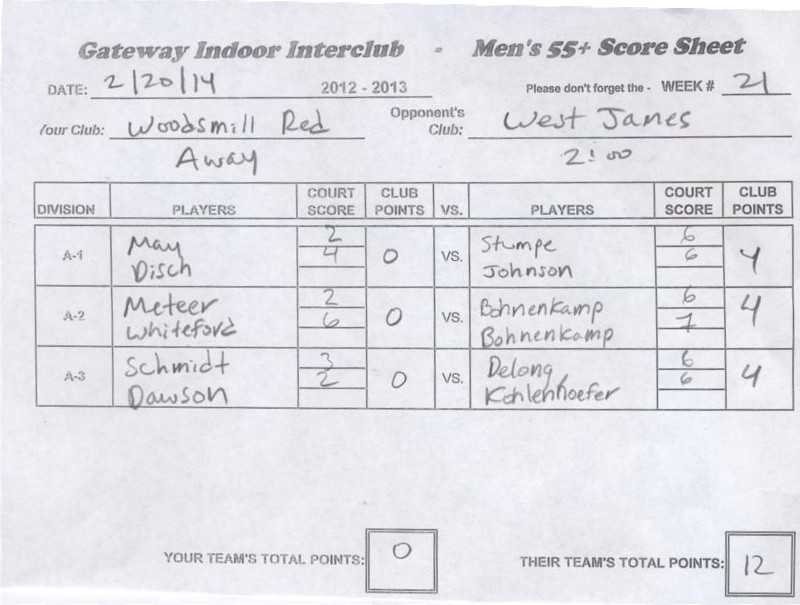 Gateway Indoor Interclub - Men's 55+ Score Sheet
DATE: 2/20/14 2012 - 2013 Please don't forget the - WEEK # 21
Your Club: Woodsmill Red Opponent's Club: West James
Away 2:00
DIVISION PLAYERS COURT SCORE CLUB POINTS VS. PLAYERS COURT SCORE CLUB POINTS
A-1 May 2 0 VS. Stumpe 6 4
Disch 4 Johnson 6
A-2 Meteer 2 0 VS. Bohnenkamp 6 4
Whiteford 6 Bohnenkamp 7
A-3 Schmidt 3 0 VS. Delong 6 4
Dawson 2 Kohlenhoefer 6
YOUR TEAM'S TOTAL POINTS: 0 THEIR TEAM'S TOTAL POINTS: 12